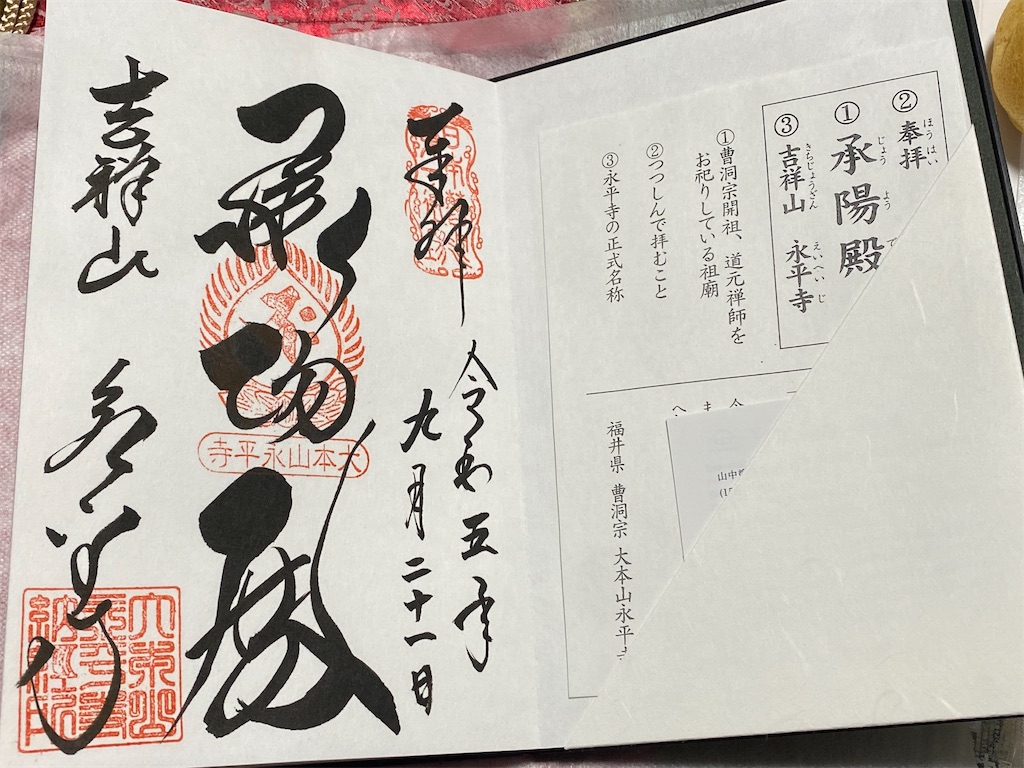 ② 奉拝
ほうはい
① 承陽殿
じょう よう
③ 吉祥山 永平寺
きちじょうざん えいへいじ
①曹洞宗開祖、道元禅師を
お祀りしている祖廟
②つつしんで拝むこと
③永平寺の正式名称
福井県 曹洞宗 大本山永平
奉拝
令和五年
九月二十一日
承陽殿
大本山永平寺
吉祥山 永平寺